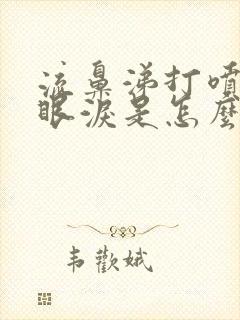 流鼻涕打噴
眼淚是怎麼
韦歡娥